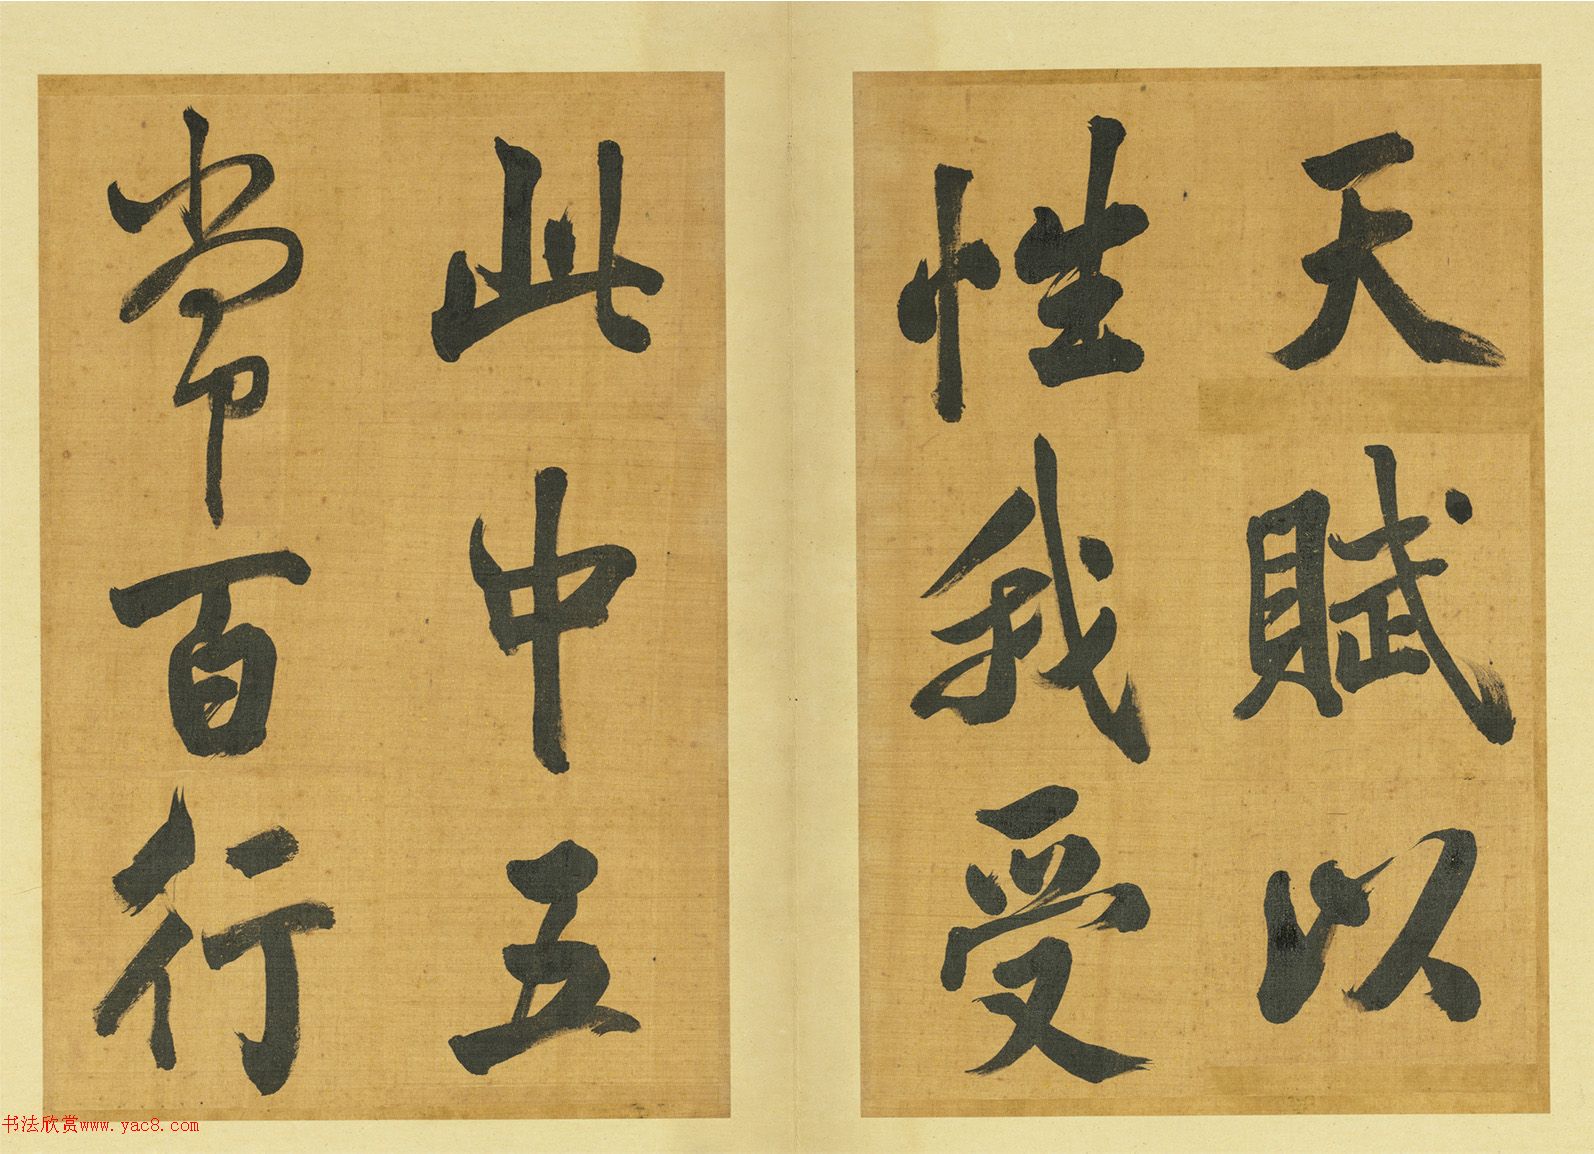 天賦以
性我受
此中五
常百行
书法欣赏www.yac8.com